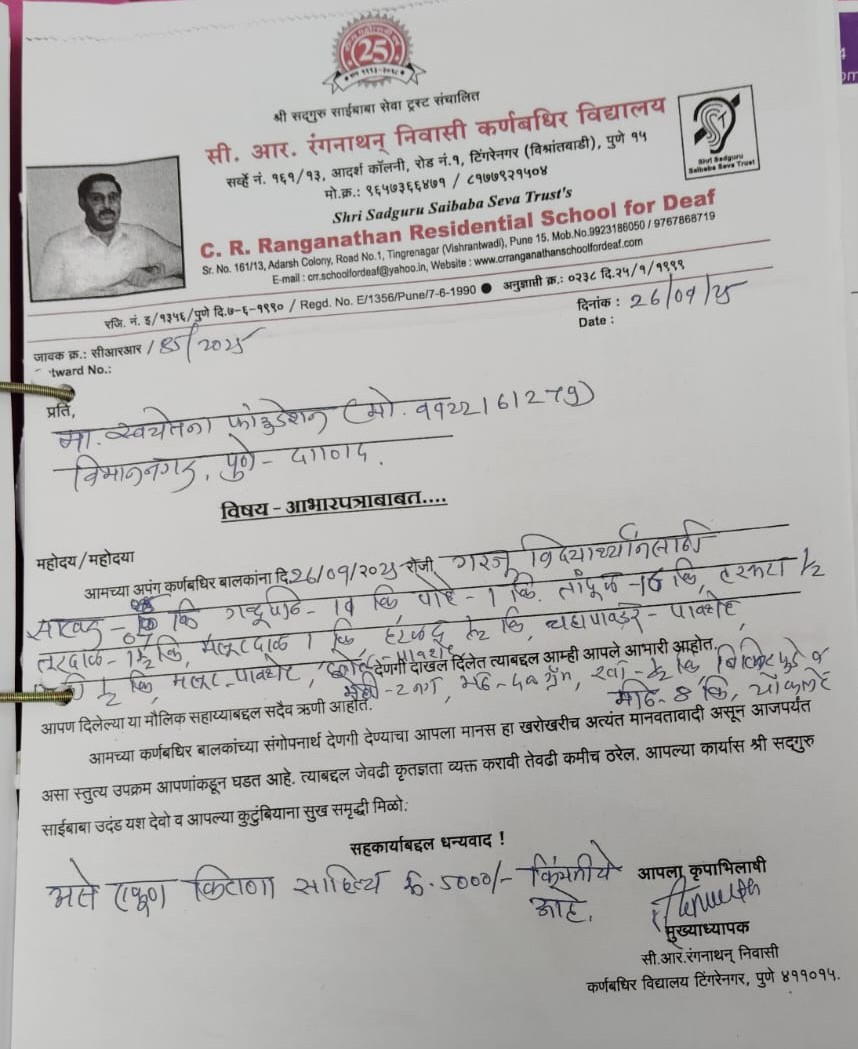 25
श्री सदगुरु साईबाबा सेवा ट्रस्ट संचालित
सी. आर. रंगनाथन् निवासी कर्णबधिर विद्यालय
सर्व्हे नं. १६१/१३, आदर्श कॉलनी, रोड नं.१, टिंगरेनगर (विश्रांतवाडी), पुणे १५
मो.क्र.: ९६५७३६६४७१ / ८१७७९२१५०४
Shri Sadguru Saibaba Seva Trust's
C. R. Ranganathan Residential School for Deaf
Sr. No. 161/13, Adarsh Colony, Road No.1, Tingrenagar (Vishrantwadi), Pune 15, Mob.No.9923186050 / 9767868719
E-mail : crr.schoolfordeaf@yahoo.in, Website : www.crranganathanschoolfordeaf.com
रजि. नं. इ/१३५६/पुणे दि.७-६-१९९० / Regd. No. E/1356/Pune/7-6-1990 ● अनुज्ञाप्ती क्र.: ०२३८ दि.२५/१/१९९९
Shri Sadguru
Saibaba Seva Trust
दिनांक : 26/09/25
Date :
जावक क्र.: सीआरआर / 85/2025
tward No.:
प्रति,
मा. स्वयेतना फांउडेशन (मो. 9922161279)
विमाननगर, पुणे - ४११०१४.
विषय - आभारपत्राबाबत....
महोदय/महोदया
आमच्या अपंग कर्णबधिर बालकांना दि.26/09/2025 रोजी गरजू विद्यार्थ्यांनसाठी
साखर - कि गहूपीठ - कि, पोहे - 1 कि. तांदूळ - कि, 1/2
तुरदाळ - 1 1/2 कि, मसूरदाळ 1 कि हळद 1/2 कि, चहापावडर - पावशेर,
1/2 कि, मसूर - पावशेर, देणगी दाखल दिलेत त्याबद्दल आम्ही आपले आभारी आहोत.
- 2 नग, रवा - 1/2 कि, बिस्किट पुडे व
आपण दिलेल्या या मौलिक सहाय्याबद्दल सदैव ऋणी आहोत. मीठ - 8 कि, चॉकलेट
आमच्या कर्णबधिर बालकांच्या संगोपनार्थ देणगी देण्याचा आपला मानस हा खरोखरीच अत्यंत मानवतावादी असून आजपर्यंत
असा स्तुत्य उपक्रम आपणांकडून घडत आहे. त्याबद्दल जेवढी कृतज्ञता व्यक्त करावी तेवढी कमीच ठरेल. आपल्या कार्यास श्री सदगुरु
साईबाबा उदंड यश देवो व आपल्या कुटुंबियाना सुख समृद्धी मिळो.
सहकार्याबद्दल धन्यवाद !
असे एकूण किराणा साहित्य रु. 5000/- किंमतीचे
आहे.
आपला कृपाभिलाषी
मुख्याध्यापक
सी.आर.रंगनाथन् निवासी
कर्णबधिर विद्यालय टिंगरेनगर, पुणे ४११०१५.